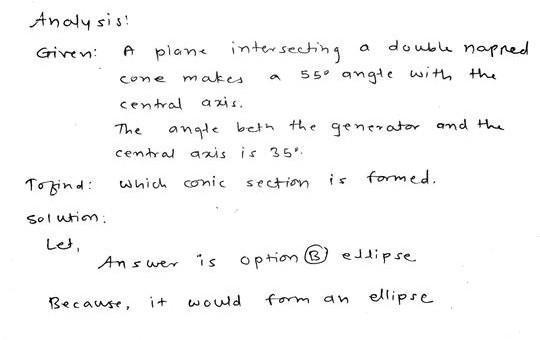 Analysis!
Given: A plane intersecting a double napped
cone makes a 55° angle with the
central axis.
The angle betn the generator and the
central axis is 35°.
To find: which conic section is formed.
Solution:
Let,
Answer is option (B) ellipse
Because, it would form an ellipse